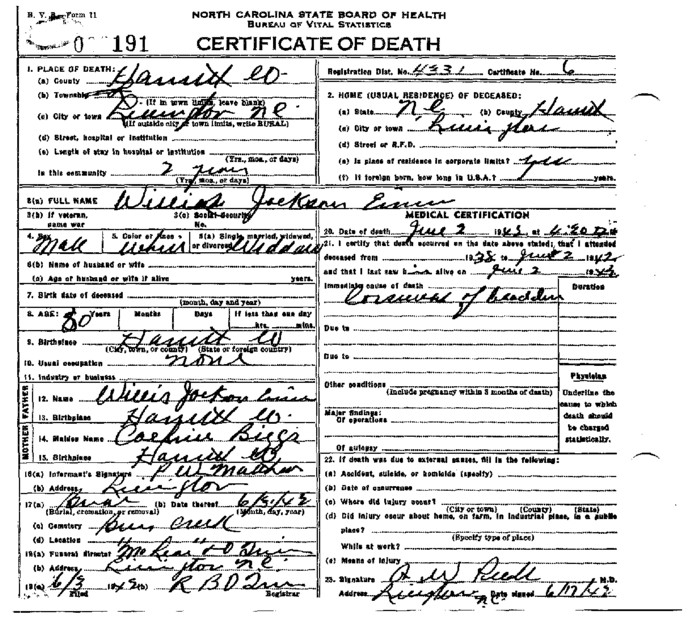 N. V. S. Form 11
NORTH CAROLINA STATE BOARD OF HEALTH
BUREAU OF VITAL STATISTICS
191
CERTIFICATE OF DEATH
Registration Dist. No. 4331 Certificate No. 6
1. PLACE OF DEATH:
(a) County Harnett Co.
(b) Township
(If in town limits, leave blank)
(c) City or town Lillington N.C.
(If outside city or town limits, write RURAL)
(d) Street, hospital or institution
(e) Length of stay in hospital or institution
(Yrs., mos., or days)
In this community 2 years
(Yrs., mos., or days)
2. HOME (USUAL RESIDENCE) OF DECEASED:
(a) State N.C. (b) County Harnett
(c) City or town Lillington
(d) Street or R.F.D.
(e) Is place of residence in corporate limits? yes
(f) If foreign born, how long in U.S.A.? years.
3(a) FULL NAME William Jackson
3(b) If veteran, name war
3(c) Social Security No.
4. Sex Male
5. Color or race White
6(a) Single, married, widowed, or divorced Widowed
6(b) Name of husband or wife
(c) Age of husband or wife if alive years.
7. Birth date of deceased
(month, day and year)
8. AGE: 80 Years Months Days If less than one day
hrs. mins.
9. Birthplace Harnett Co
(City, town, or county) (State or foreign country)
10. Usual occupation none
11. Industry or business
FATHER
12. Name Willis Jackson
13. Birthplace Harnett Co.
MOTHER
14. Maiden Name Biggs
15. Birthplace Harnett Co
16(a) Informant's Signature P. W.
(b) Address Lillington
17(a) Burial (b) Date thereof 6/3/42
(Burial, cremation, or removal) (Month, day, year)
(c) Cemetery Creek
(d) Location
18(a) Funeral director
(b) Address Lillington N.C.
19(a) 6/3 1942 (b) R B
Filed Registrar
MEDICAL CERTIFICATION
20. Date of death June 2 1942, at 4:20
21. I certify that death occurred on the date above stated; that I attended
deceased from 1938 to June 2 1942
and that I last saw him alive on June 2 1942
Immediate cause of death Duration
of bladder
Due to
Due to
Other conditions
(Include pregnancy within 3 months of death)
Major findings:
Of operations
Of autopsy
Physician
Underline the cause to which death should be charged statistically.
22. If death was due to external causes, fill in the following:
(a) Accident, suicide, or homicide (specify)
(b) Date of occurrence
(c) Where did injury occur?
(City or town) (County) (State)
(d) Did injury occur about home, on farm, in industrial place, in a public
place?
(Specify type of place)
While at work?
(e) Means of injury
23. Signature M.D.
Address Lillington NC Date signed 6/17/42